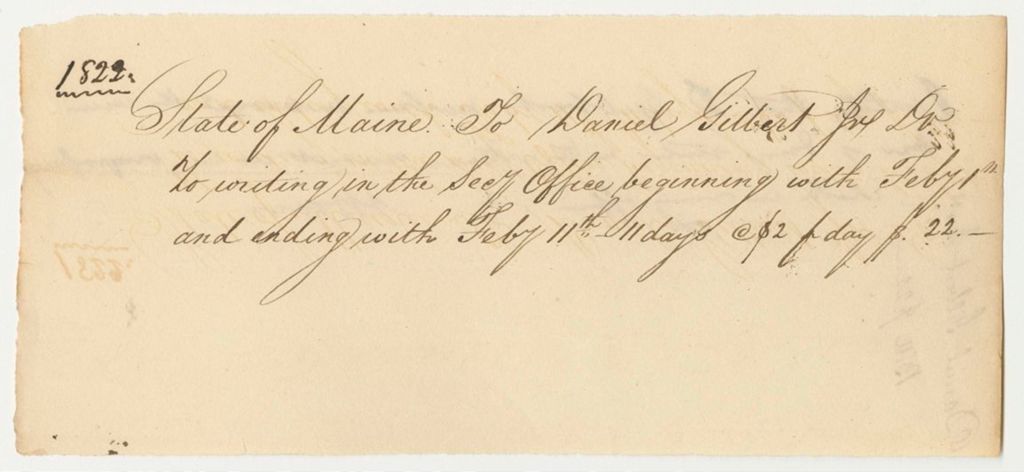 1822.
State of Maine. To Daniel Gilbert Jr Dr
To writing in the Secy Office beginning with Feby 1st
and ending with Feby 11th - 11 days @ $2 p day $. 22.—